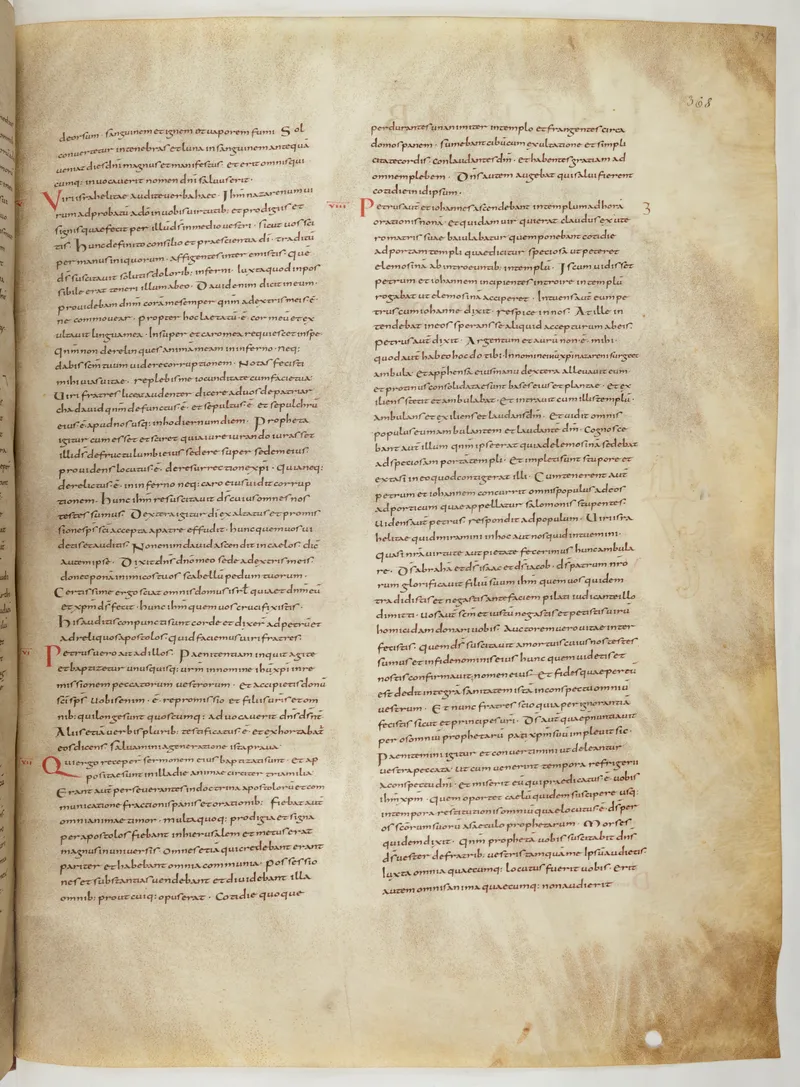 368
deorsum · sanguinem et ignem et uaporem fumi · Sol
conuertetur in tenebras et luna in sanguinem antequā
ueniat dies dn̄i magnus et manifestus · et erit omnis qui
cumq; inuocauerit nomen dn̄i saluus erit ·
Viri israhelitae audite uerba haec · Ihm̄ nazarenum ui
rum adprobatū a dō in uobis uirtutib; et prodigiis et
signis quae fecit per illū ds̄ in medio uestri · sicut uos sci
tis · hunc definito consilio et praescientia dī · traditū
per manus iniquorum · affigentes interemistis · Quē
ds̄ suscitauit solutis dolorib; inferni · Iuxta quod inpos
sibile erat teneri illum ab eo · Dauid enim dicit in eum ·
prouidebam dnm̄ coram me semper qnm̄ a dextris meis ē ·
ne commouear · propter hoc laetatū · ē · cor meū et ex
ultauit lingua mea · Insuper et caro mea requiescet in spe ·
Qnm̄ non derelinques animā meam in inferno · neq;
dabis scm̄ tuum uidere corruptionem · Notas fecisti
mihi uias uitae · replebis me iocunditate cum facie tua ·
Uiri fratres liceat audenter dicere ad uos de patriar
cha dauid qnm̄ defunctus · ē · et sepultus · ē · et sepulchrū
eius · ē · apud nos usq; in hodiernum diem · Propheta
igitur cum esset et sciret quia iure iurando iurasset
illi ds̄ de fructu lumbi eius sedere super sedem eius ·
prouidens locutus · ē · de resurrectione xp̄i · Quia neq;
derelictus · ē · in inferno neq; caro eius uidit corrup
tionem · hunc ihm̄ resuscitauit ds̄ cuius omnes nos
testes sumus · Dextera igitur dī exaltatus et promis
sione sp̄s sc̄i accepta a patre effudit · hunc quem uos ui
detis et auditis · Non enim dauid ascendit in caelos · dic̄
autem ipse · Dixit dn̄s dn̄o meo sede a dextris meis
donec ponā inimicos tuos scabellū pedum tuorum ·
Certissime ergo sciat omnis domus isrl̄ quia et dnm̄ eū
et xpm̄ ds̄ fecit · hunc ihm̄ quem uos crucifixistis ·
His auditis compuncti sunt corde et dixer̄ ad petrū et
ad reliquos apostolos · quid faciemus uiri fratres ·
vi
Petrus uero ait ad illos · Paenitentiam inquit agite
et baptizetur unusquisq; urm̄ in nomine ihū xp̄i in re
missionem peccatorum uestrorum · et accipietis donū
sc̄i sp̄s · Uobis enim · ē · repromissio · et filiis uris̄ et om
nib; qui longe sunt quoscumq; aduocauerit dn̄s ds̄ nr̄ ·
Aliis etiā uerbis plurib; testificatus · ē · et exhortabat̄
eos dicens · saluamini a generatione ista praua ·
vii
Qui ergo receper̄ sermonem eius baptizati sunt · et ap
positae sunt in illa die animae circiter tria milia ·
Erant autē perseuerantes in doctrina apostolorū et com
municatione fractionis panis et orationib; · fiebat autē
omni animae timor · multa quoq; prodigia et signa
per apostolos fiebant in hierusalem et metus erat
magnus in uniuersis · Omnes etiā qui credebant erant
pariter et habebant omnia communia · possessio
nes et substantias uendebant et diuidebant illa
omnib; prout cuiq; opus erat · Cotidie quoque
perdurantes unanimiter in templo et frangentes circa
domos panem · sumebant cibum cum exultatione et simpli
citate cordis · conlaudantes dm̄ · et habentes gratiam ad
omnem plebem · Dn̄s autem augebat qui salui fierent
cotidie in idipsum ·
viii
Petrus autē et iohannes ascendebant in templum ad hora 3
orationis nonā · et quidam uir qui erat claudus ex ute
ro matris suae baiulabatur quem ponebant cotidie
ad portam templi quae dicitur speciosa ut peteret
elemosinā ab introeuntib; in templū · Is cum uidisset
petrum et iohannem incipientes introire in templū
rogabat ut elemosinā acciperet · Intuens autē eum pe
trus cum iohanne dixit · respice in nos · At ille in
tendebat in eos sperans se aliquid accepturum ab eis ·
petrus autē dixit · Argentum et aurū non · ē · mihi ·
quod autē habeo hoc do tibi · In nomine ihū xp̄i nazareni surge et
ambula · et appraehensa eius manu dextera alleuauit eum ·
et protinus consolidatae sunt bases eius et plantae · et ex
iliens stetit et ambulabat · et intrauit cum illis templū ·
Ambulans et exiliens et laudans dm̄ · et uidit omnis
populus eum ambulantem et laudantē dm̄ · Cognosce
bant autē illum qnm̄ ipse erat qui ad elemosinā sedebat
ad speciosam portā templi · et impleti sunt stupore et
extasi in eo quod contigerat illi · Cum teneret autē
petrum et iohannem concurrit omnis populus ad eos
ad porticum quae appellatur salomonis stupentes ·
Uidens autē petrus respondit ad populum · Uiri isra
helitae quid miramini in hoc aut nos quid intuemini ·
quasi nrā uirtute aut pietate fecerimus hunc ambula
re · Ds̄ abrahā et ds̄ isaac et ds̄ iacob · ds̄ patrum nr̄o
rum glorificauit filiū suum ihm̄ quem uos quidem
tradidistis et negastis ante faciem pilati iudicante illo
dimitti · Uos autē scm̄ et iustū negastis et petistis uirū
homicidam donari uobis · Auctorem uero uitae inter
fecistis · quem ds̄ suscitauit a mortuis cuius nos testes
sumus et in fide nominis eius hunc quem uidetis et
nostis confirmauit nomen eius · et fides quae per eū
est dedit integrā sanitatem istā in conspectu omniū
uestrum · Et nunc fratres scio quia per ignorantiā
fecistis sicut et principes uri · Ds̄ autē quae praenuntiauit
per os omniū prophetarū pati xpm̄ suū impleuit sic ·
Paenitemini igitur et conuertimini ut deleantur
uestra peccata · ut cum uenerint tempora refrigerii
a conspectu dn̄i · et miserit eū qui praedicatus · ē · uobis
ihm̄ xpm · Quem oportet caelū quidem suscipere usq;
in tempora restitutionis omniū quae locutus · ē · ds̄ per
os sc̄orum suorū a saeculo prophetarum · Moyses
quidem dixit · Qnm̄ propheta uobis suscitabit dn̄s
ds̄ uester de fratrib; uestris tamquā me · Ipsū audietis
Iuxta omnia quaecumq; locutus fuerit uobis · Erit
autem omnis anima quaecumq; non audierit